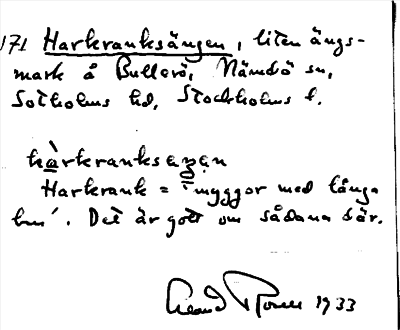 171 Harkranksängen, liten ängs-
mark å Bullerö, Nämdö sn,
Sotholms hd, Stockholms l.
hàrkranksęŋən
Harkrank = "myggor med långa
ben". Det är gott om sådana där.
1933